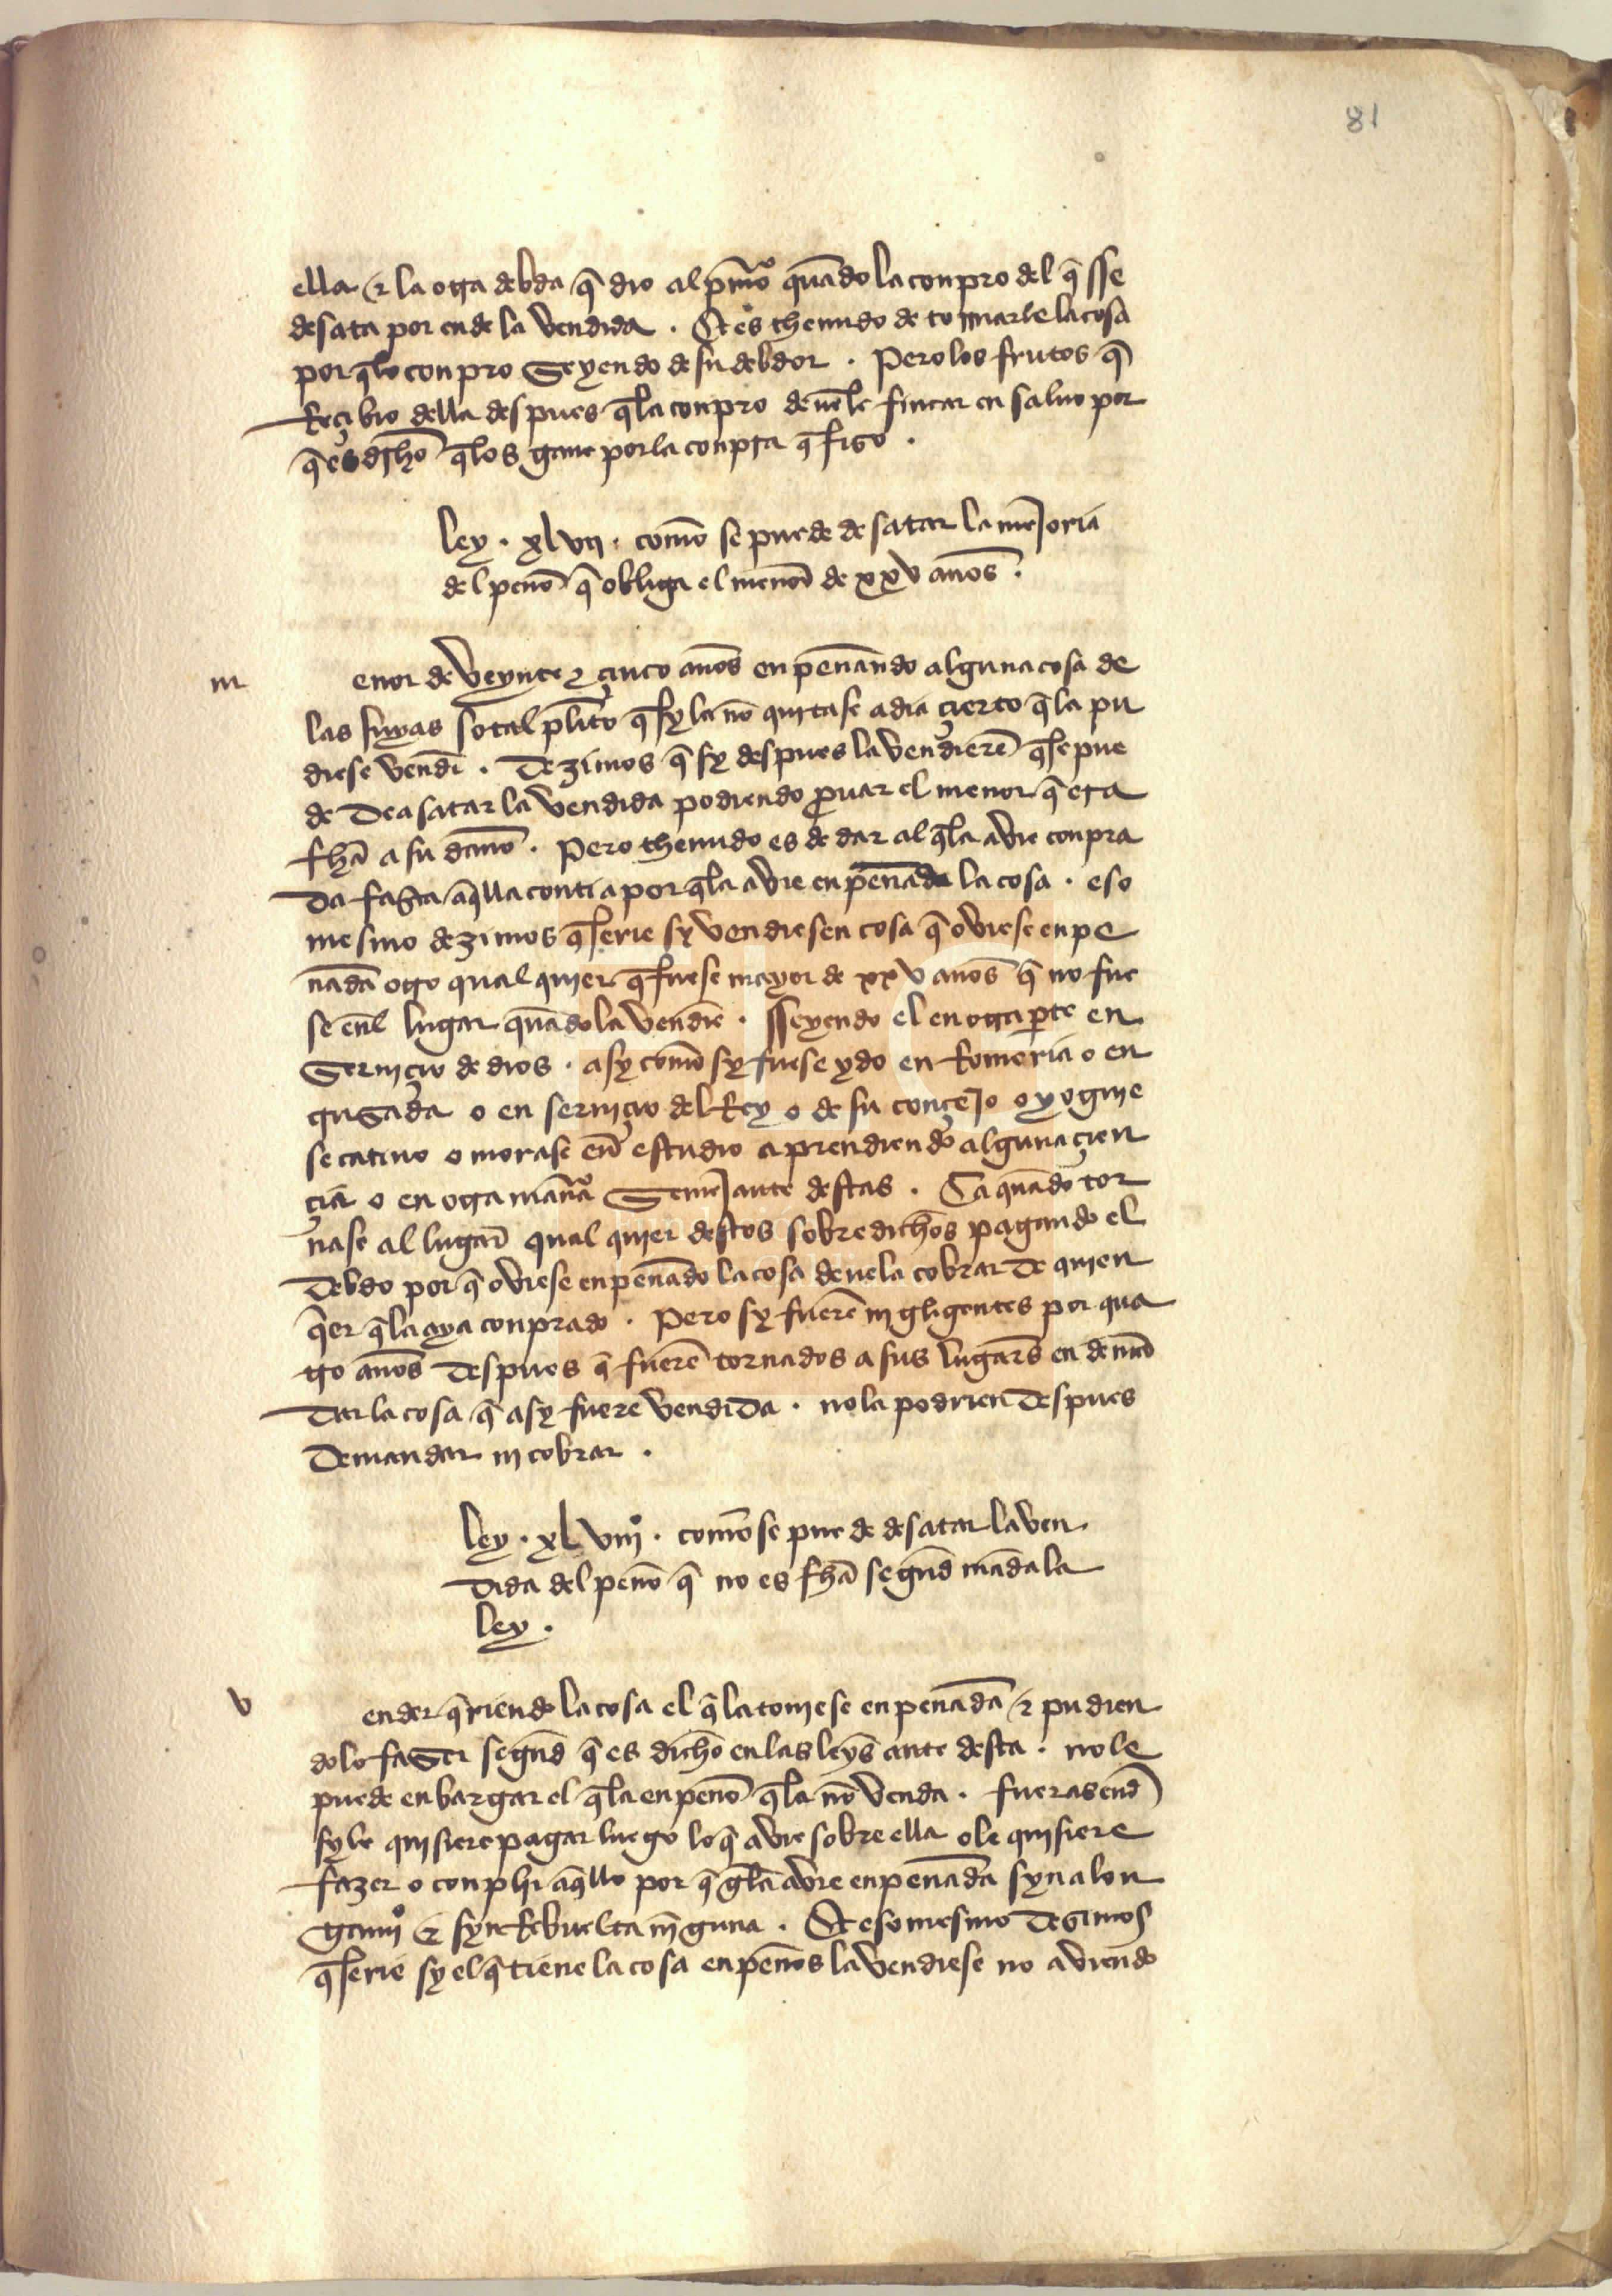 81
ella & la otra debda q̃ dio al pͥmo quãdo la conpro del q̃ sse
desata por ende la vendida . Et es thenudo de tomarle la cosa
por q̃ lo conpro Seyendo de su debdor . Pero los frutos q̃
Reçibio della despues q̃la conpro deuẽle fincar en saluo por
q̃ es dicho q̃ los gano por la conpra q̃ fiso .
ley . xlvij . como se puede desatar la mejoria
del peño q̃ obliga el menor de xxv años .
m
enor de veynte & çinco años enpeñando alguna cosa de
las suyas so tal plito q̃ sy la nõ quitase a dia çierto q̃ la pu
diese vendẽ . Dezimos q̃ sy despues la vendierẽ q̃ se pue
de deasatar la vendida podiendo prouar el menor q̃ era
fhã a su daño . Pero thenudo es de dar al q̃la avie conpra
da fasta aq̃lla contia por q̃la avie enpeñada la cosa . eso
mesmo dezimos q̃ serie sy vendiesen cosa q̃ oviese enpe
ñada otro qual quier q̃ fuese mayor de xxv años q̃ no fue
se enl lugar quãdo la vendiẽ . sseyendo el en otra parte en
Seruiçio de dios . asy como sy fuese ydo en Romeria o en
crusada o en seruiçio del Rey o de su conçejo o yoguie
se catiuo o morase enl estudio aprendiendo alguna çien
çia o en otra manͣa Semejante destas . Ca quãdo tor
nase al lugar qual quier destos sobre dichos pagando el
debdo por q̃ oviese enpeñado la cosa deuela cobrar de quien
q̃er q̃la aya conprado . Pero sy fuerẽ ni gligentes por qua
tro años despues q̃ fuerẽ tornados a sus lugares en demã
dar la cosa q̃ asy fuere vendida . no la podrien despues
demandar ni cobrar .
ley . xlviijͦ . como se puede desatar la ven
dida del peño q̃ no es fhã segũd mãda la
ley .
v
ender q̃riendo la cosa el q̃ la touiese enpeñada & pudien
dolo faser segũd q̃ es dicho en las leys ante desta . no le
puede enbargar el q̃la enpeño q̃la nõ venda . fueras end
sy le quisiere pagar luego lo q̃ avie sobre ella o le quisiere
fazer o conplir aq̃llo por q̃ gela avie enpeñada syn alon
gamiͦ & syn Rebuelta nĩguna . Et eso mesmo desimos
q̃ serie sy el q̃ tiene la cosa en peños la vendiese no aviendo